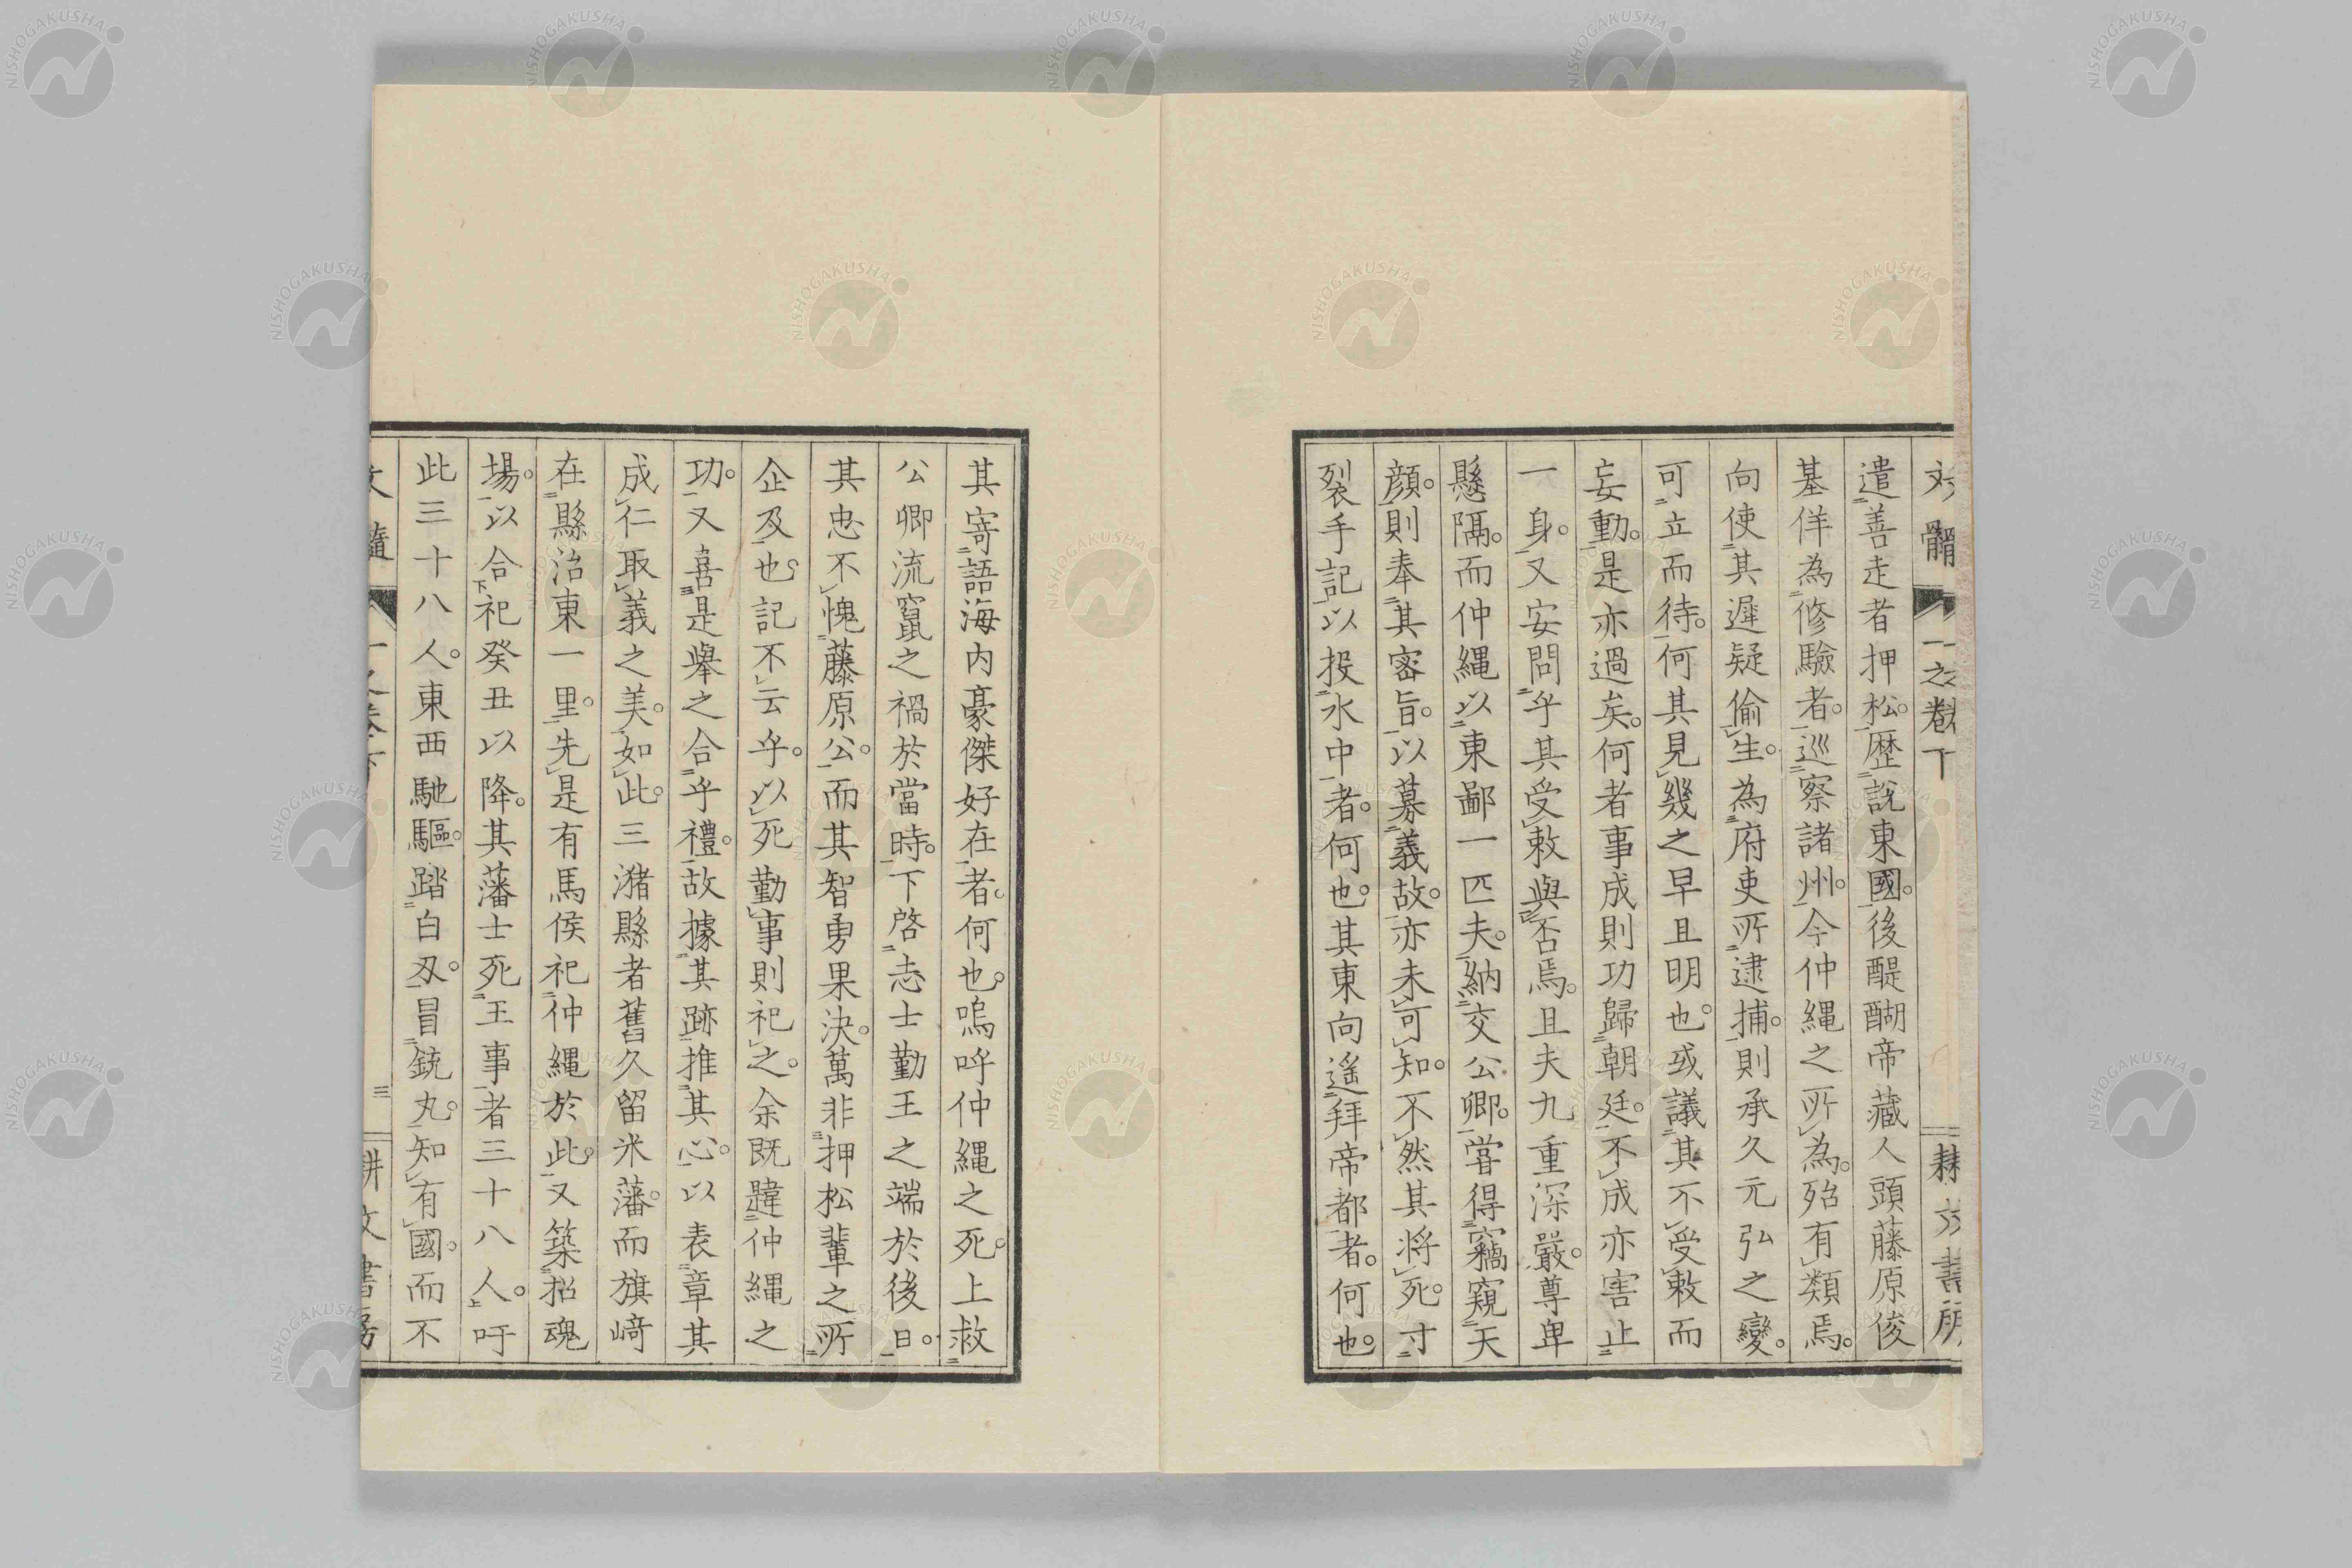 遣善走者押松。歴說東國。後醍醐帝藏人頭藤原俊
基佯為修驗者。巡察諸州。今仲縄之所為。殆有類焉。
向使其遲疑偷生。為府吏所逮捕。則承久元弘之變。
可立而待。何其見幾之早且明也。或議其不受敕而
妄動。是亦過矣。何者事成則功歸朝廷。不成亦害止
一身。又安問乎其受敕與否焉。且夫九重深嚴。尊卑
懸隔。而仲縄以東鄙一匹夫。納交公卿。嘗得竊窺天
顏。則奉其密旨。以募義故。亦未可知。不然其將死。寸
裂手記以投水中者。何也。其東向遥拜帝都者。何也。
其寄語海内豪傑好在者。何也。嗚呼仲縄之死。上救
公卿流竄之禍於當時。下啓志士勤王之端於後日。
其忠不愧藤原公。而其智勇果決。萬非押松輩之所
企及也。記不云乎。以死勤事則祀之。余既韙仲縄之
功。又喜是擧之合乎禮。故據其跡推其心。以表章其
成仁取義之美。如此。三潴縣者舊久留米藩。而旗﨑
在縣治東一里。先是有馬侯祀仲縄於此。又築招魂
場。以合祀癸丑以降。其藩士死王事者三十八人。吁
此三十八人。東西馳驅。踏白刃。冒銃丸。知有國。而不